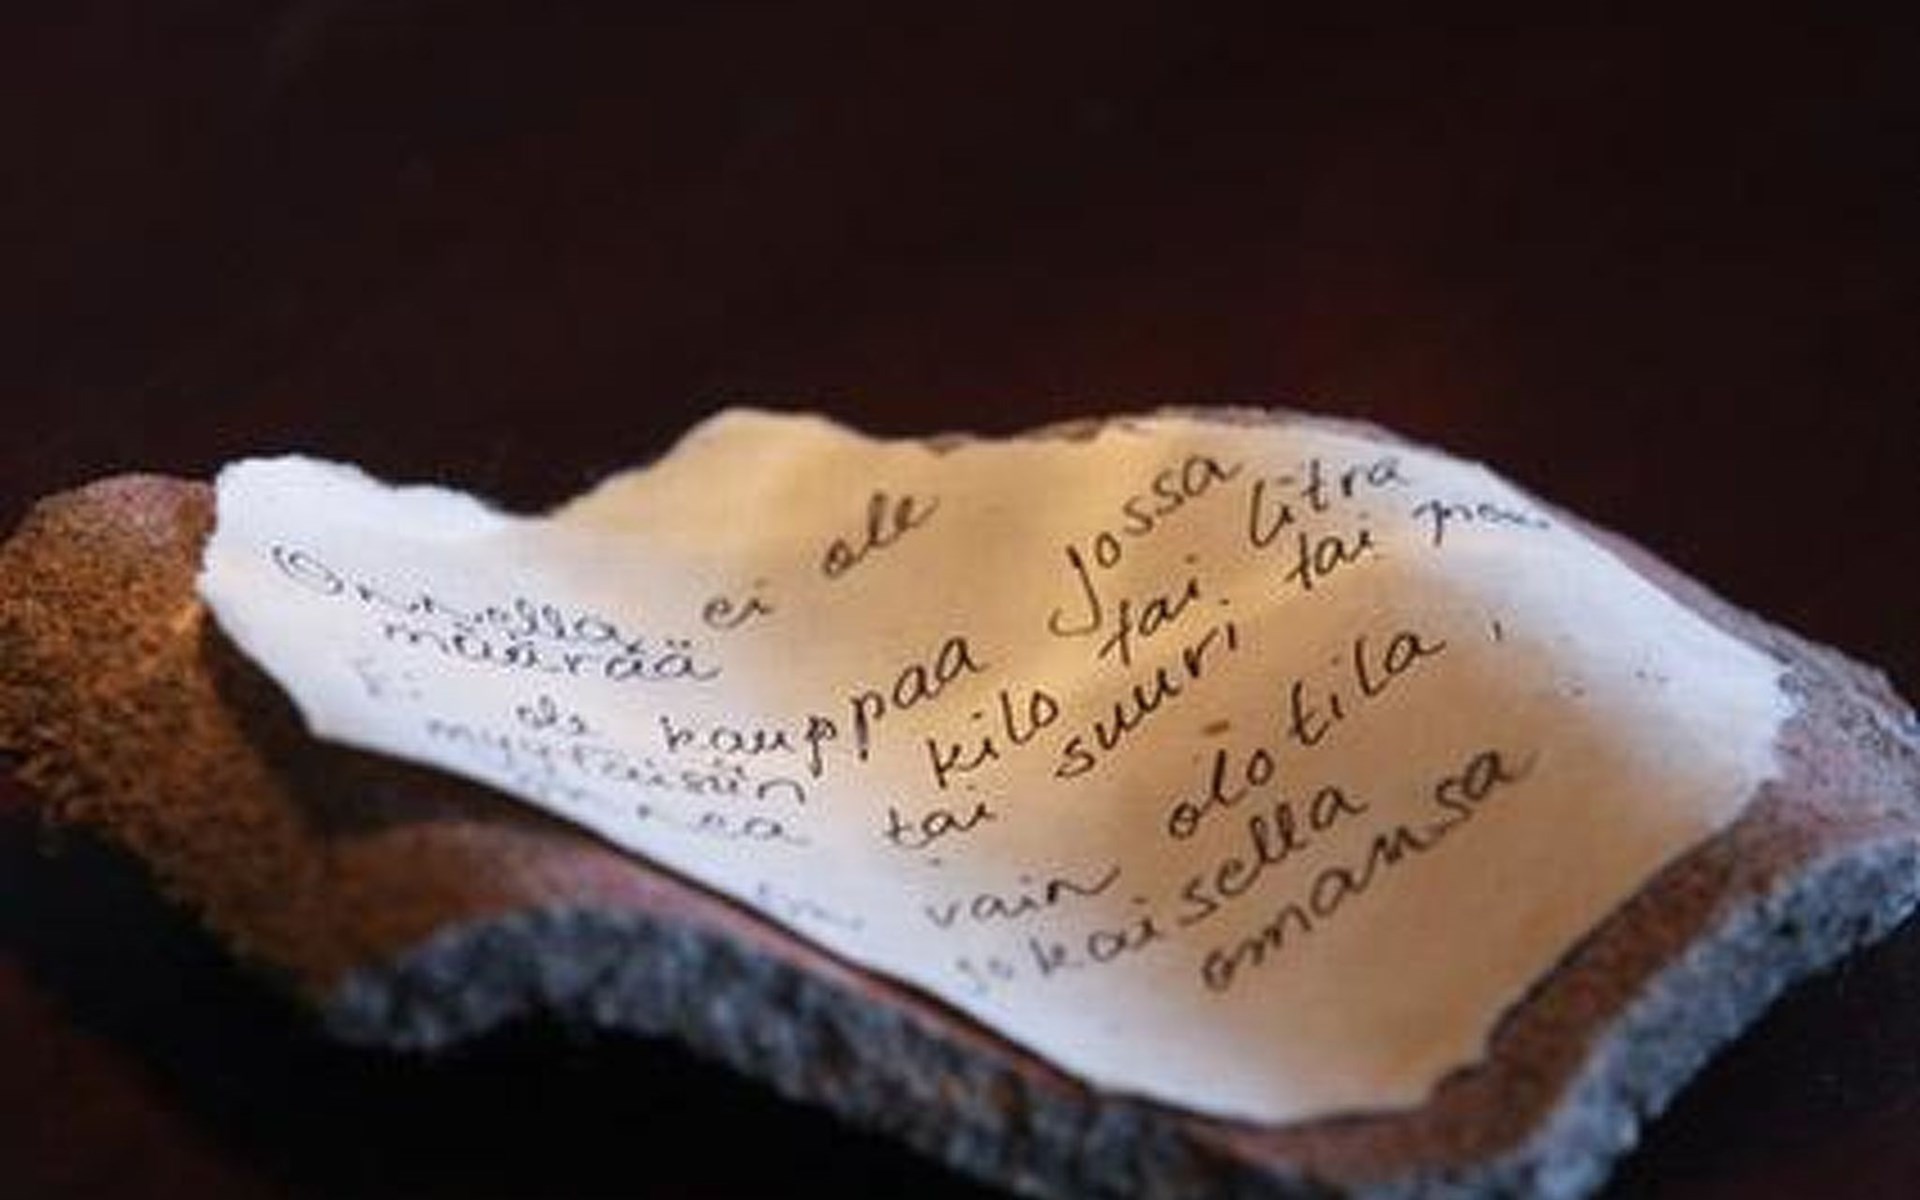 Onnella ei ole
määrää
ole kauppaa jossa
myytäisiin kilo tai litra
tai suuri tai
vain olotila,
jokaisella
omansa